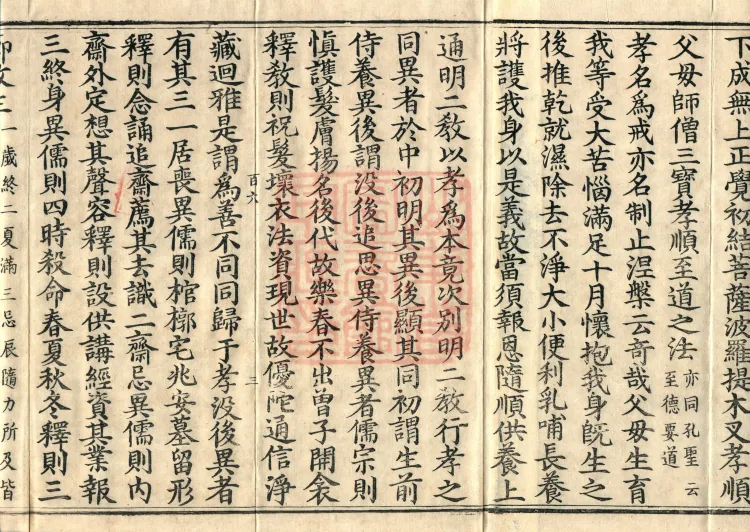 下成無上正覺初結菩薩波羅提木叉孝順
父母師僧三寶孝順至道之法亦同孔聖云至德要道
孝名爲戒亦名制止涅槃云奇哉父母生育
我等受大苦惱滿足十月懷抱我身旣生之
後推乾就濕除去不淨大小便利乳哺長養
將護我身以是義故當須報恩隨順供養上
通明二教以孝爲本竟次別明二教行孝之
同異者於中初明其異後顯其同初謂生前
侍養異後謂没後追思異侍養異者儒宗則
慎護髮膚揚名後代故樂春不出曾子開衾
釋教則祝髮壞衣法資現世故優陀通信淨
藏迴雅是謂爲善不同同歸于孝没後異者
百六
三
有其三一居喪異儒則棺槨宅兆安墓留形
釋則念誦追齋薦其去識二齋忌異儒則内
齋外定想其聲容釋則設供講經資其業報
三終身異儒則四時殺命春夏秋冬釋則三
節放三一歲終二夏滿三忌辰隨力所及皆